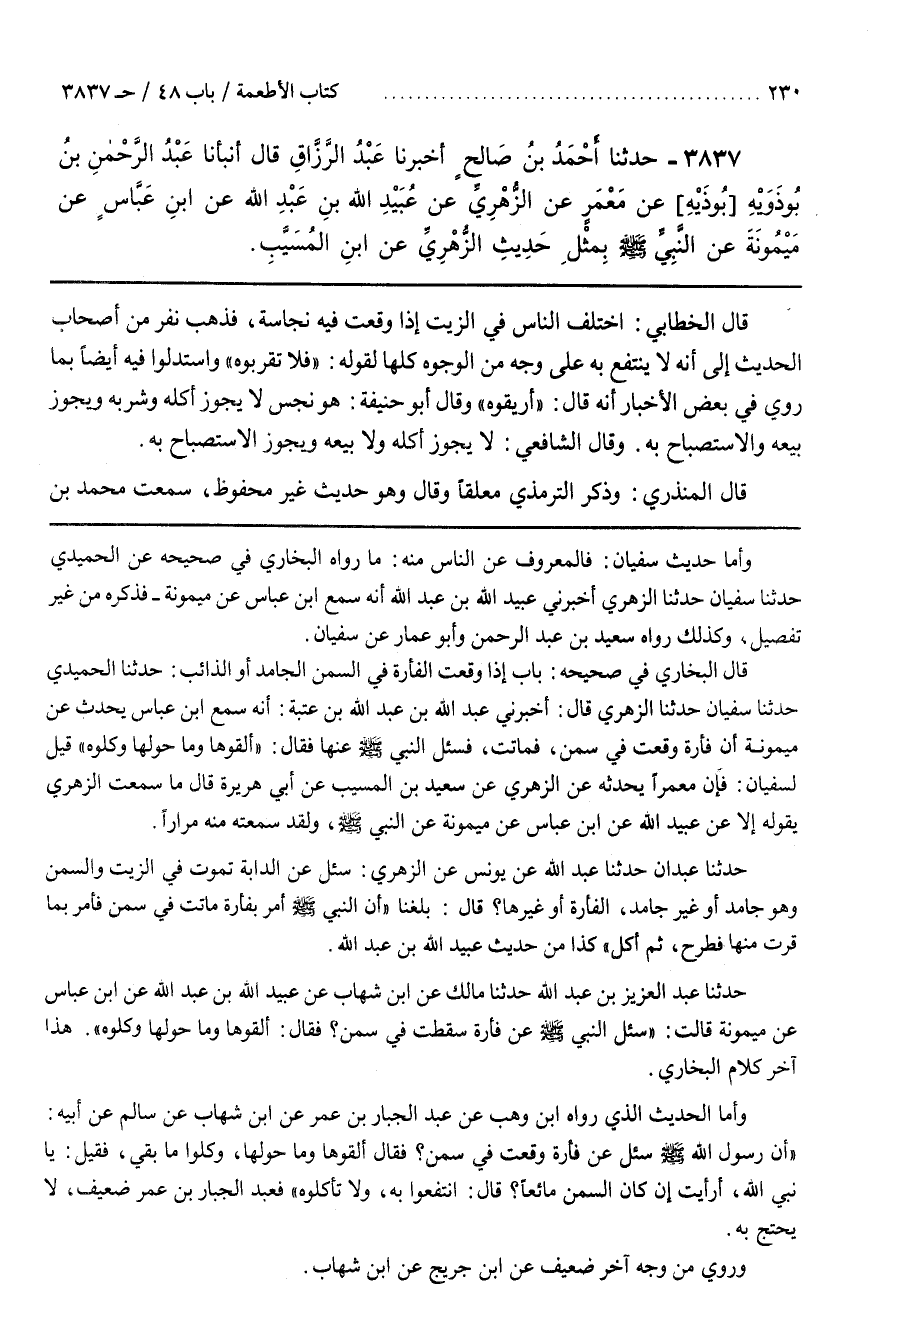 ٢٣٠ ............................................. كتاب الأطعمة / باب ٤٨ / حـ ٣٨٣٧
٣٨٣٧ - حدثنا أَحْمَدُ بنُ صَالحٍ أخبرنا عَبْدُ الرَّزَّاقِ قال أنبأنا عَبْدُ الرَّحْمٰنِ بنُ
بُوذَوَيْهِ [بُوذَيْهِ] عن مَعْمَرٍ عن الزُّهْرِيِّ عن عُبَيْدِ الله بنِ عَبْدِ الله عن ابنِ عَبَّاسٍ عن
مَيْمُونَةَ عن النَّبِيِّ ﷺ بِمثْلِ حَدِيثِ الزُّهْرِيِّ عن ابنِ المُسَيَّبِ.
قال الخطابي: اختلف الناس في الزيت إذا وقعت فيه نجاسة، فذهب نفر من أصحاب
الحديث إلى أنه لا ينتفع به على وجه من الوجوه كلها لقوله: «فلا تقربوه» واستدلوا فيه أيضاً بما
روي في بعض الأخبار أنه قال: «أريقوه» وقال أبو حنيفة: هو نجس لا يجوز أكله وشربه ويجوز
بيعه والاستصباح به. وقال الشافعي: لا يجوز أكله ولا بيعه ويجوز الاستصباح به.
قال المنذري: وذكر الترمذي معلقاً وقال وهو حديث غير محفوظ، سمعت محمد بن
وأما حديث سفيان: فالمعروف عن الناس منه: ما رواه البخاري في صحيحه عن الحميدي
حدثنا سفيان حدثنا الزهري أخبرني عبيد الله بن عبد الله أنه سمع ابن عباس عن ميمونة - فذكره من غير
تفصيل، وكذلك رواه سعيد بن عبد الرحمن وأبو عمار عن سفيان.
قال البخاري في صحيحه: باب إذا وقعت الفأرة في السمن الجامد أو الذائب: حدثنا الحميدي
حدثنا سفيان حدثنا الزهري قال: أخبرني عبد الله بن عبد الله بن عتبة: أنه سمع ابن عباس يحدث عن
ميمونة أن فأرة وقعت في سمن، فماتت، فسئل النبي ﷺ عنها فقال: «ألقوها وما حولها وكلوه» قيل
لسفيان: فإن معمراً يحدثه عن الزهري عن سعيد بن المسيب عن أبي هريرة قال ما سمعت الزهري
يقوله إلا عن عبيد الله عن ابن عباس عن ميمونة عن النبي ﷺ، ولقد سمعته منه مراراً.
حدثنا عبدان حدثنا عبد الله عن يونس عن الزهري: سئل عن الدابة تموت في الزيت والسمن
وهو جامد أو غير جامد، الفأرة أو غيرها؟ قال : بلغنا «أن النبي ﷺ أمر بفأرة ماتت في سمن فأمر بما
قرت منها فطرح، ثم أكل» كذا من حديث عبيد الله بن عبد الله.
حدثنا عبد العزيز بن عبد الله حدثنا مالك عن ابن شهاب عن عبيد الله بن عبد الله عن ابن عباس
عن ميمونة قالت: «سئل النبي ﷺ عن فأرة سقطت في سمن؟ فقال: ألقوها وما حولها وكلوه». هذا
آخر كلام البخاري.
وأما الحديث الذي رواه ابن وهب عن عبد الجبار بن عمر عن ابن شهاب عن سالم عن أبيه:
«أن رسول الله ﷺ سئل عن فأرة وقعت في سمن؟ فقال ألقوها وما حولها، وكلوا ما بقي، فقيل: يا
نبي الله، أرأيت إن كان السمن مائعاً؟ قال: انتفعوا به، ولا تأكلوه» فعبد الجبار بن عمر ضعيف، لا
يحتج به.
وروي من وجه آخر ضعيف عن ابن جريج عن ابن شهاب.